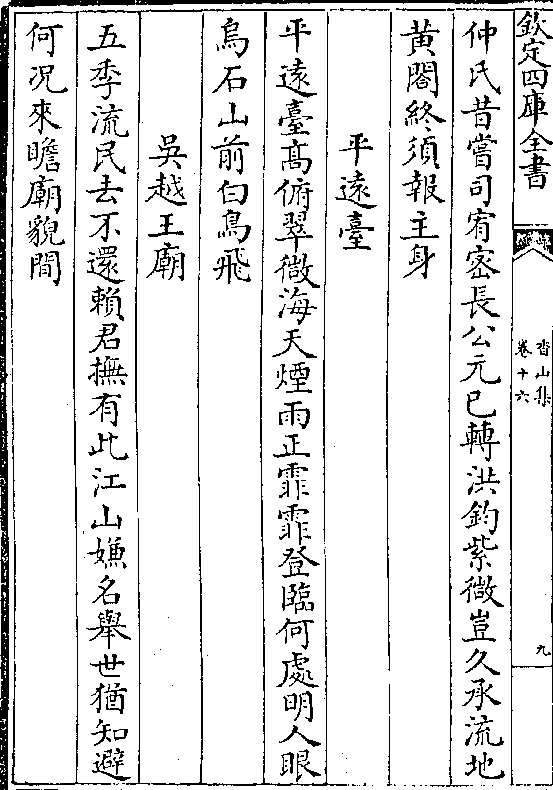 欽定四庫全書
香山集
卷十六
九
仲氏昔嘗司宥密長公元已轉洪鈞紫微豈久承流地
黄閣終須報主身
平遠臺
平遠臺髙俯翠微海天煙雨正霏霏登臨何處明人眼
烏石山前白鳥飛
吳越王廟
五季流民去不還賴君撫有此江山嫌名舉世猶知避
何况來瞻廟貌間